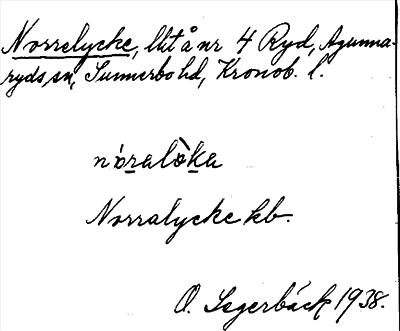 Norrelycke, lht å nr 4 Ryd, Agunna-
ryds sn, Sunnerbo hd, Kronob. l.
nòralỳka
Norralycke kb.
O. Segerbäck 1938.